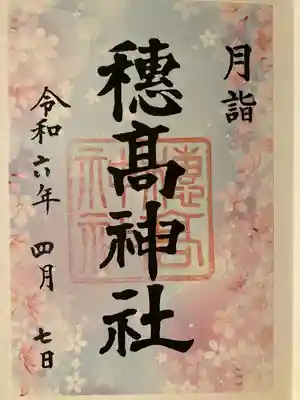 月詣
穂髙神社
穂高神社
令和六年 四月 七日